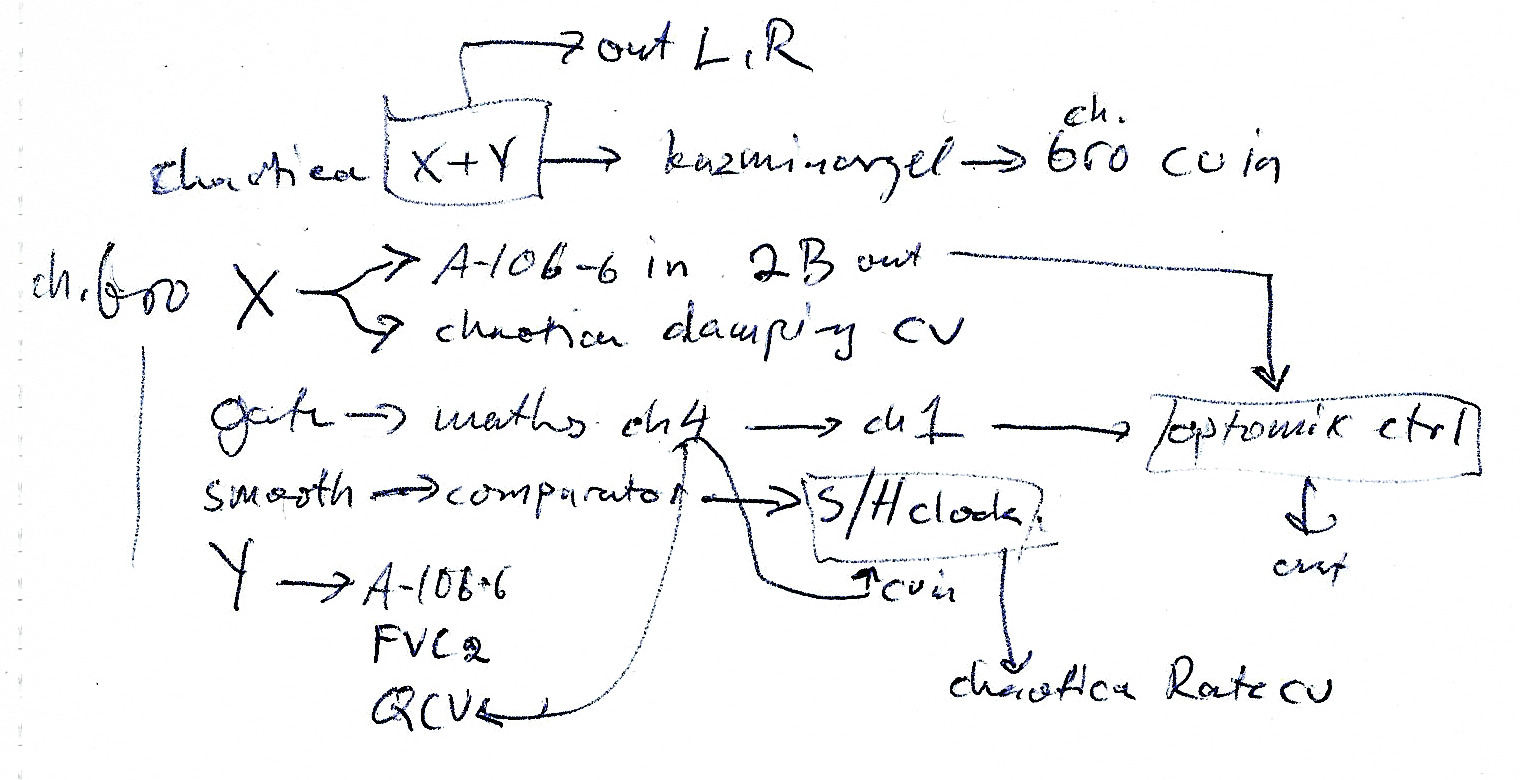 → out L, R
chaotica X+Y → kazminorgel → ch. Gro CV in
ch. Gro X → A-106-6 in 2B out
→ chaotica damping CV
gate → maths ch4 → ch 1 → optomix ctrl
smooth → comparator → S/H clock
CV in
out
Y → A-106-6
FVC2
QCV
chaotica Rate CV